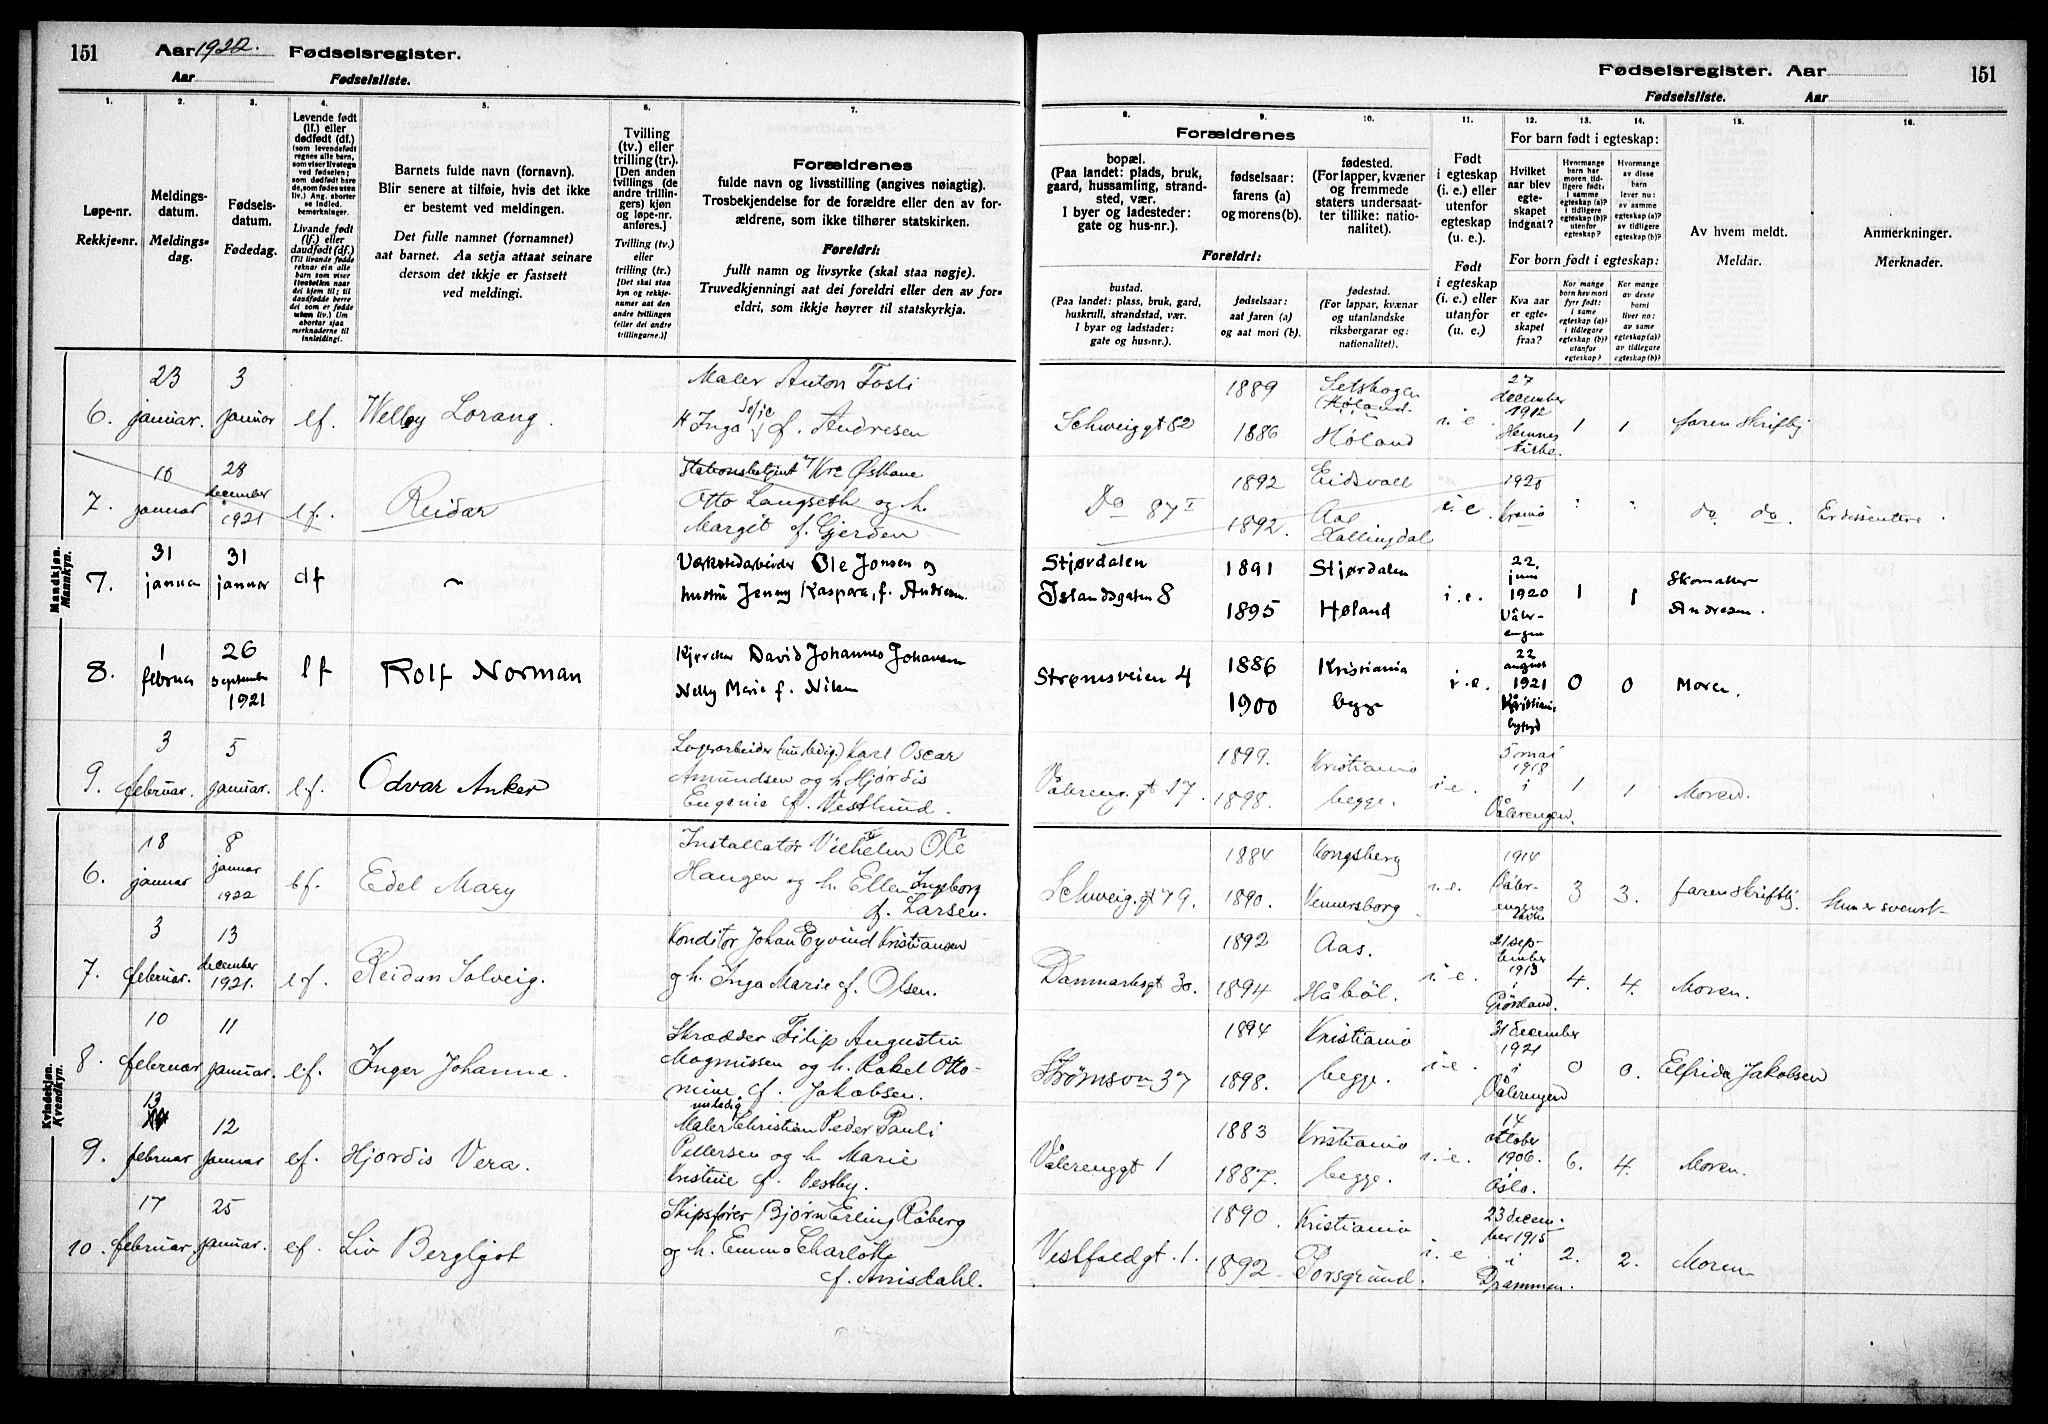 151 Aar 1922. Fødselsregister.
Aar Fødselsliste.
Fødselsregister. Aar 151
Fødselsliste. Aar
1. 2. 3. 4. 5. 6. 7. 8. 9. 10. 11. 12. 13. 14. 15. 16.
Løpe-nr.
Rekkje-nr.
Meldings-
datum.
Meldings-
dag.
Fødsels-
datum.
Fødedag.
Levende født
(lf.) eller
dødfødt (df.)
Levande født
(lf.) eller
daudfødt (df.)
Barnets fulde navn (fornavn).
Blir senere at tilføie, hvis det ikke
er bestemt ved meldingen.
Det fulle namnet (fornamnet)
aat barnet. Aa setja attaat seinare
dersom det ikkje er fastsett
ved meldingi.
Tvilling
(tv.) eller
trilling (tr.).
[Den anden
tvillings (de
andre trillin-
gers) kjøn
og løpe-nr.
anføres.]
Tvilling (tv.)
eller
trilling (tr.)
[Det skal staa
kyn og rekkje-
numer aat den
andre tvillingen
(eller dei andre
trillingarne.)]
Forældrenes
fulde navn og livsstilling (angives nøiagtig).
Trosbekjendelse for de forældre eller den av for-
ældrene, som ikke tilhører statskirken.
Foreldri:
fullt namn og livsyrke (skal staa nøgje).
Truvedkjenningi aat dei foreldri eller den av for-
eldri, som ikkje høyrer til statskyrkja.
Forældrenes
bopæl.
(Paa landet: plads, bruk,
gaard, hussamling, strand-
sted, vær.
I byer og ladesteder:
gate og hus-nr.).
fødselsaar:
farens (a)
og morens(b).
fødested.
(For lapper, kvæner
og fremmede
staters undersaat-
ter tillike: natio-
nalitet).
Foreldri:
bustad.
(Paa landet: plass, bruk, gard,
huskrull, strandstad, vær.
I byar og ladstader:
gate og hus-nr.).
fødselsaar:
aat faren (a)
og aat mori (b).
fødestad.
(For lappar, kvænar
og utanlandske
riksborgarar og:
nationalitet).
Født
i egteskap
(i. e.) eller
utenfor
egteskap
(u. e.).
Født
i egteskap
(i. e.) eller
utanfor
(u. e.).
For barn født i egteskap:
Hvilket
aar blev
egte-
skapet
indgaat?
Hvormange
barn har
moren tid-
ligere født:
i samme
egteskap (a)?
i tidligere
egteskap (b)?
utenfor
egteskap?
Hvormange
av disse
barn
lever nu:
av samme
egteskap (a)?
av tidligere
egteskap (b)?
For born født i egteskap:
Kva aar
er egte-
skapet
fraa?
Kor mange
born hev mori
fyrr født:
i same
egteskap (a)?
i tidlegare
egteskap (b)?
utanfor
egteskap?
Kor mange
av desse
borni
liver no:
av same
egteskap (a)?
av tidlegare
egteskap (b)?
Av hvem meldt.
Meldar.
Anmerkninger.
Merknader.
Mandkjøn.
Mannkyn.
6. 23 januar. 3 januar lf. Welley Lorang.
Maler Anton Fosli
H Inga Sofie f. Andresen
Schweiggt 82 1889 1886 Høland Høland i. e. 27 december 1912 Hemnes kirke. 1 1 faren skriftlj
7. 10 januar 28 december 1921 lf. Reidar
Stationsbetjent v/ Kre Østbane
Otto Langseth og h.
Margit f. Gjerden
Do 87 I 1892 1892. Eidsvoll Aal Hallingdal i. e. 1920 do. do. Er dissentere.
7. 31 januar 31 januar df ~
Verkstedarbeider Ole Jonsen og
hustru Jenny Kaspara, f. Andresen.
Stjørdalen Islandsgaten 8 1891 1895 Stjørdalen Høland i. e. 22. juni 1920 Våler- engen 1 1 Skomaker Andresen.
8. 1 februar 26 september 1921 lf Rolf Norman
David Johannes Johansen
Nelly Marie f. Nilsen
Strømsveien 4 1886 1900 Kristiania begge i. e. 22 august 1921 0 0 Moren.
9. 3 februar. 5 januar. lf. Odvar Anker
Lagerarbeider (nu ledig.) Karl Oscar
Amundsen og h. Hjørdis
Eugenie f. Vestlund.
Vålereng.gt 17. 1899. 1898. Kristiania begge. i e. 5 mai 1918 i Vålerengen. 1 1 Moren.
Kvindekjøn.
Kvendkyn.
6. 18 januar 8 januar 1922 lf. Edel Mary
Installatør Vilhelm Ole
Haugen og h. Ellen Ingeborg
f. Larsen.
Schweig.gt 79. 1884 1890. Kongsberg Vennersborg i. e. 1914 Våler- engens kirke 3 3. faren skriftlj. Hun er svensk
7. 3 februar. 13 december 1921. lf. Reidun Solveig.
Konditor Johan Eyvind Kristiansen
og h. Inga Marie f. Olsen.
Danmarksgt 30. 1892 1894 Aas. Håbøl. i. e. 21 sep- tember 1913 i Grønland. 4. 4. Moren.
8. 10 februar 11 januar. lf. Inger Johanne.
Skrædder Filip Augustin
Magnussen og h. Rakel Otto-
mine f. Jakobsen.
Strømsvn 37 1894 1898. Kristiania begge. i. e. 31 december 1921 i Vålerengen 0 0. Elfrida Jakobsen
9. 13 februar 12 januar lf. Hjørdis Vera.
nu ledig
Maler Christian Peder Pauli
Pettersen og h. Marie
Kristine f. Vestby.
Vålerenggt 1 1883 1887. Kristiania begge. i. e. 14 oktober 1906. Oslo. 6. 4. Moren.
10. 17 februar. 25 januar. lf. Liv Bergljot
Skipsfører Bjørn Erling Røberg
og h. Emma Charlotte
f. Amsdahl.
Vestfoldgt. 1. 1890. 1892 Kristiania Porsgrund. i. e 23 decem- ber 1915 i Drammen. 2. 2. Moren